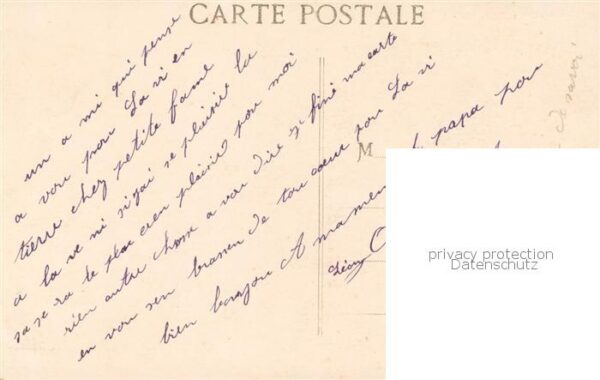 CARTE POSTALE
un a mi qui pense
a vou pour La vi en
tierre chez petite fame
a la ve mi si jai se plaisir la
sa se ra le plus cien plaisir pour moi
rien autre chose a vou dire je finé ma carte
en vou sen brassen de tou cœur pour La vi
bien bonjou A maman papa pour
Léon
M
privacy protection
Datenschutz